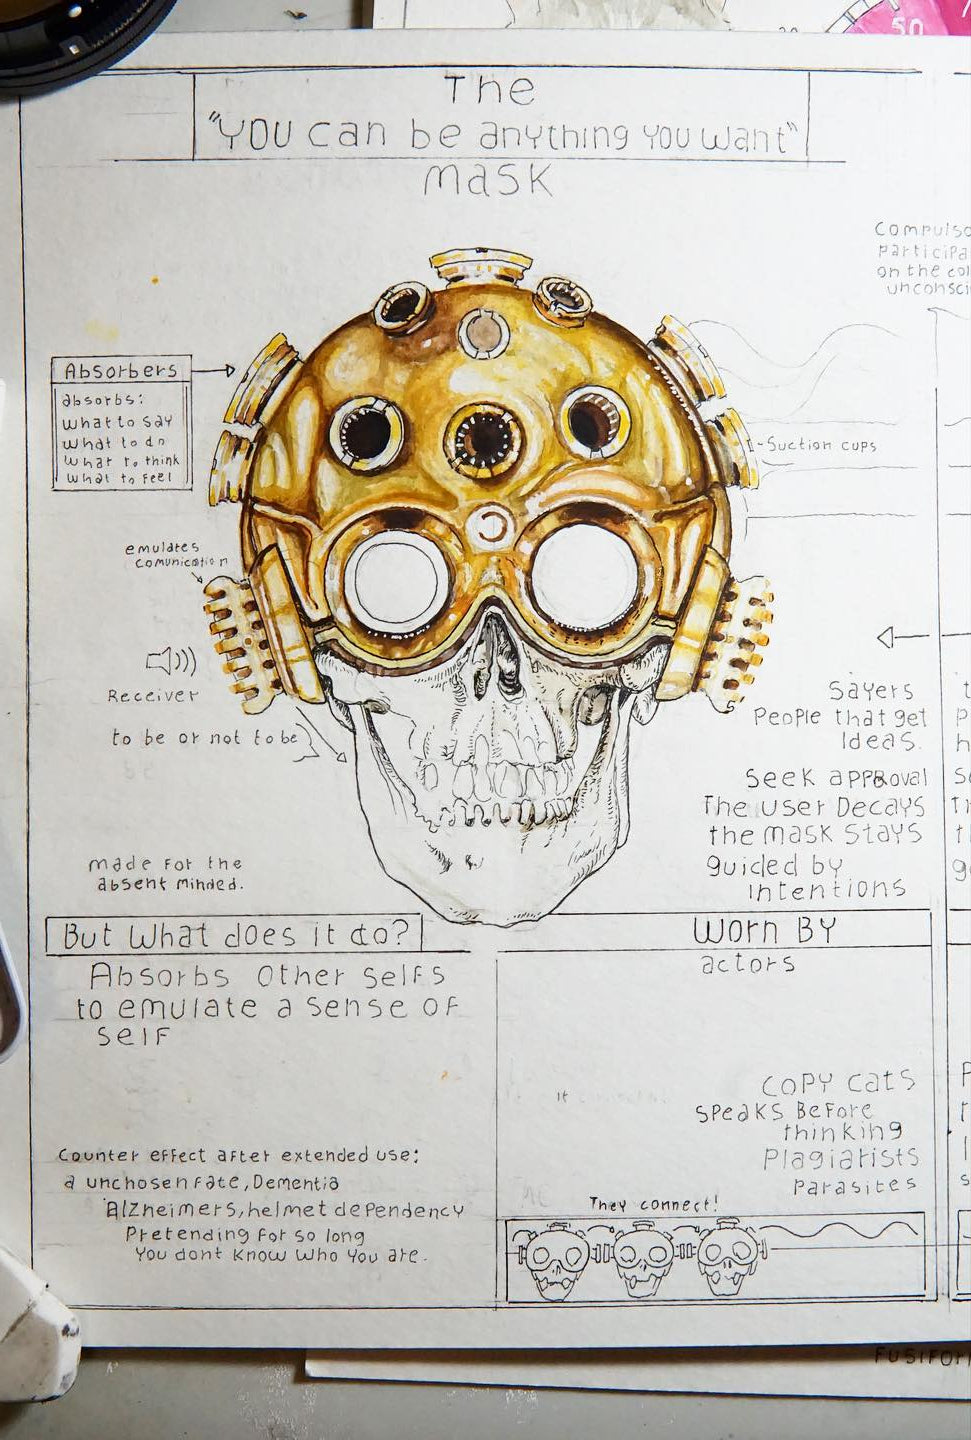 The
"You can be anything you want"
mask
Compulso
Participa
on the col
unconsci
Absorbers
absorbs:
what to say
what to do
what to think
what to feel
-Suction cups
emulates
comunication
Receiver
to be or not to be
Sayers
People that get
Ideas.
Seek approval
The user Decays
the mask stays
guided by
Intentions
made for the
absent minded.
But what does it do?
Absorbs other selfs
to emulate a sense of
self
Worn By
actors
Copy cats
speaks before
thinking
Plagiarists
Parasites
Counter effect after extended use:
a unchosen fate, Dementia
Alzheimers, helmet dependency
Pretending for so long
you dont know who you are.
They connect!
50